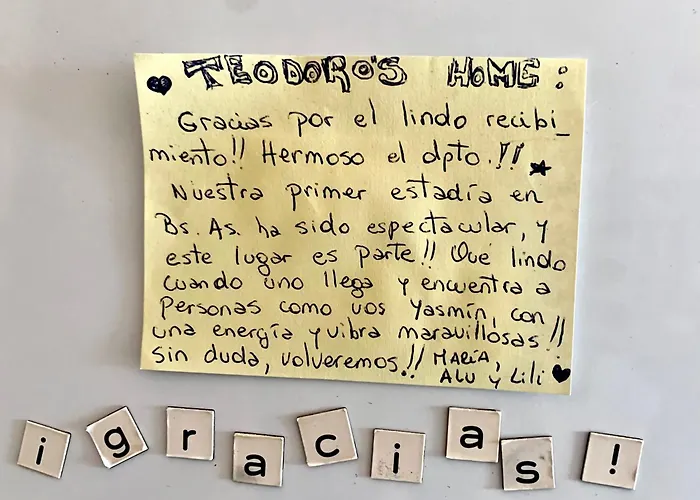 TEODORO'S HOME:
Gracias por el lindo recibi_
miento!! Hermoso el dpto.!!
Nuestra primer estadía en
Bs. As. ha sido espectacular, y
este lugar es parte!! Qué lindo
cuando uno llega y encuentra a
personas como vos Yasmín, con
una energía y vibra maravillosas!!
sin duda, volveremos!! MARÍA,
ALU y Lili
¡gracias!